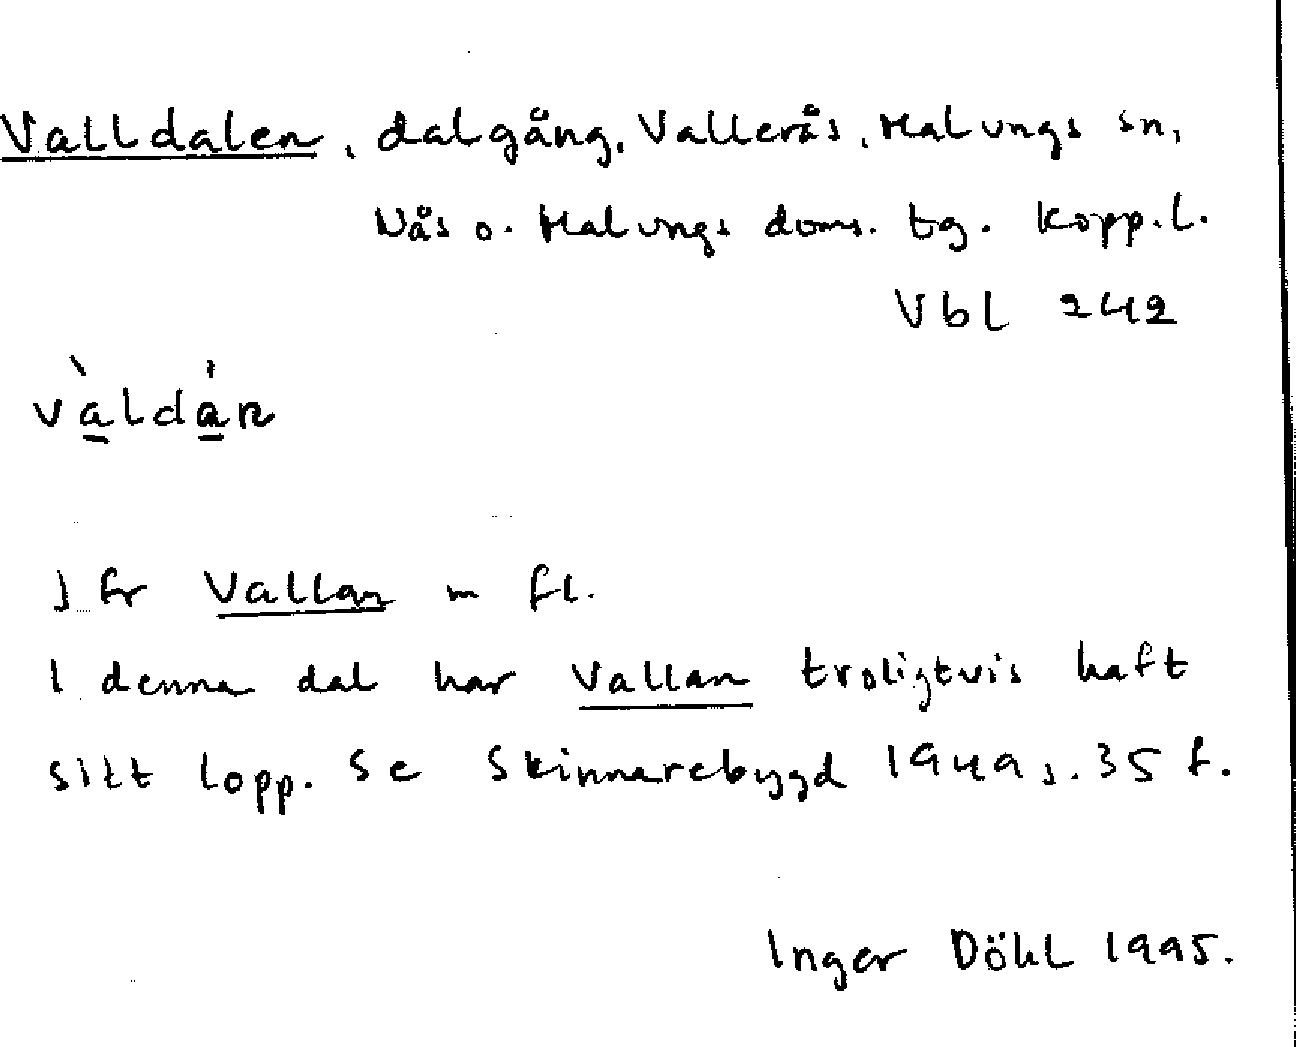 Valldalen, dalgång, Vallerås, Malungs sn,
Nås o. Malungs doms. tg. Kopp.l.
Vbl 242
và̠ldá̠n
jfr Vallan m fl.
I denna dal har Vallan troligtvis haft
sitt lopp. Se Skinnarebygd 1949 s. 35 f.
Inger Döhl 1995.